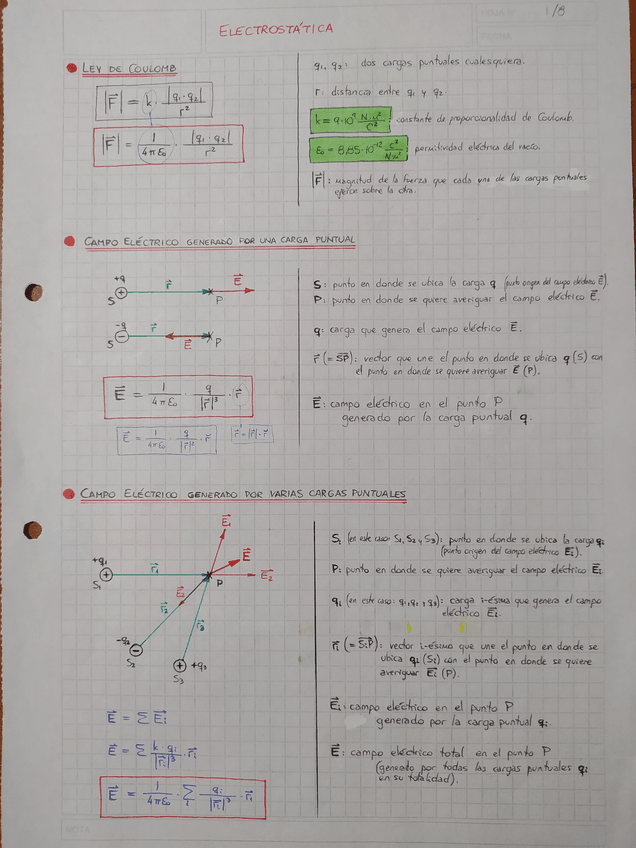 HOJA Nº 1/8
FECHA
ELECTROSTÁTICA
LEY DE COULOMB
|F⃗| = k · |q₁ · q₂| / r²
|F⃗| = 1 / 4πε₀ · |q₁ · q₂| / r²
q₁, q₂: dos cargas puntuales cualesquiera.
r: distancia entre q₁ y q₂.
k = 9·10⁹ N·m² / C² : constante de proporcionalidad de Coulomb.
ε₀ = 8,85·10⁻¹² C² / N·m² : permitividad eléctrica del vacío.
|F⃗|: magnitud de la fuerza que cada una de las cargas puntuales
ejerce sobre la otra.
CAMPO ELÉCTRICO GENERADO POR UNA CARGA PUNTUAL
+q r⃗ E⃗
S + P
-q r⃗
S − E⃗ P
E⃗ = 1 / 4πε₀ · q / |r⃗|³ · r⃗
E⃗ = 1 / 4πε₀ · q / |r⃗|² · r̂
S: punto en donde se ubica la carga q (punto origen del campo eléctrico E⃗).
P: punto en donde se quiere averiguar el campo eléctrico E⃗.
q: carga que genera el campo eléctrico E⃗.
r⃗ (= SP): vector que une el punto en donde se ubica q (S) con
el punto en donde se quiere averiguar E⃗ (P).
E⃗: campo eléctrico en el punto P
generado por la carga puntual q.
CAMPO ELÉCTRICO GENERADO POR VARIAS CARGAS PUNTUALES
E⃗₁
+q₁ E⃗
S₁ + r⃗₁ P E⃗₂
r⃗₂ r⃗₃
-q₂
S₂ − + +q₃
S₃
E⃗ = Σ E⃗ᵢ
E⃗ = Σ k · qᵢ / |r⃗ᵢ|³ · r⃗ᵢ
E⃗ = 1 / 4πε₀ · Σᵢ qᵢ / |r⃗ᵢ|³ · r⃗ᵢ
Sᵢ (en este caso: S₁, S₂ y S₃): punto en donde se ubica la carga qᵢ
(punto origen del campo eléctrico E⃗ᵢ).
P: punto en donde se quiere averiguar el campo eléctrico E⃗ᵢ.
qᵢ (en este caso: q₁, q₂ y q₃): carga i-ésima que genera el campo
eléctrico E⃗ᵢ.
r⃗ᵢ (= SᵢP): vector i-ésimo que une el punto en donde se
ubica qᵢ (Sᵢ) con el punto en donde se quiere
averiguar E⃗ᵢ (P).
E⃗ᵢ: campo eléctrico en el punto P
generado por la carga puntual qᵢ.
E⃗: campo eléctrico total en el punto P
(generado por todas las cargas puntuales qᵢ
en su totalidad).